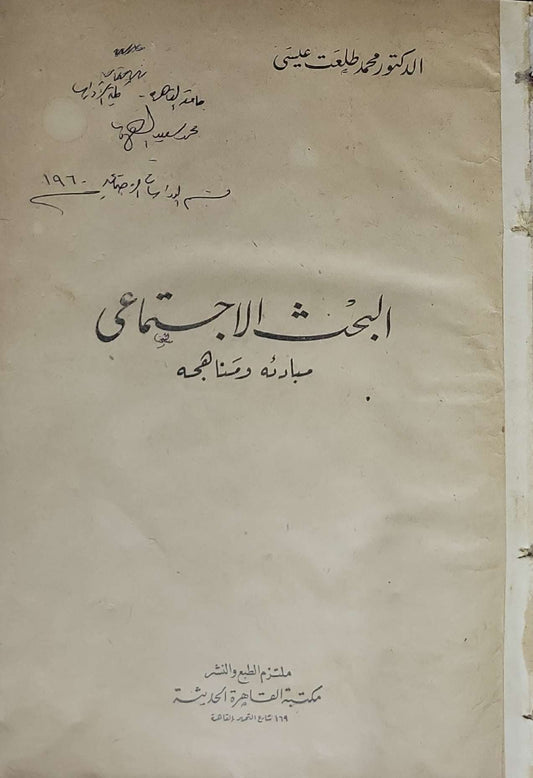 الدكتور محمد طلعت عيسى
جامعة القاهرة - كلية
محمد سعيد
قسم الدراسات الاجتماعية ١٩٦٠
البحث الاجتماعى
مبادئه ومناهجه
ملتزم الطبع والنشر
مكتبة القاهرة الحديثة
١٦٩ شارع التحرير بالقاهرة